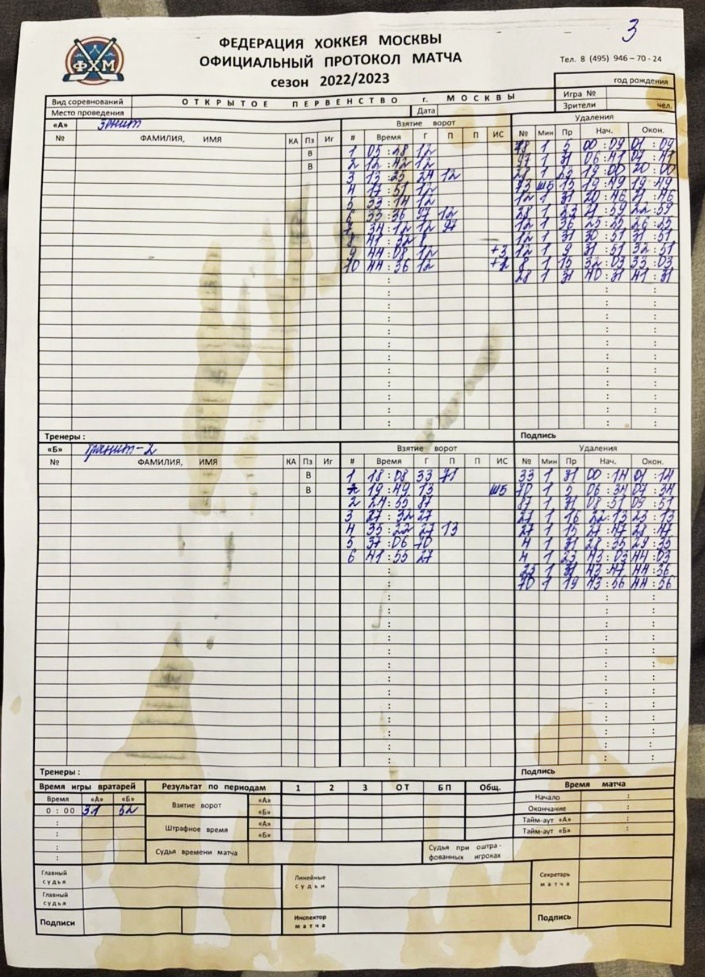 3
ФХМ
ФЕДЕРАЦИЯ ХОККЕЯ МОСКВЫ
ОФИЦИАЛЬНЫЙ ПРОТОКОЛ МАТЧА
сезон 2022/2023
Тел. 8 (495) 946 – 70 - 24
год рождения
Вид соревнований ОТКРЫТОЕ ПЕРВЕНСТВО г. МОСКВЫ Игра №
Место проведения Дата Зрители чел.
«А» Зенит Взятие ворот Удаления
№ ФАМИЛИЯ, ИМЯ КА Пз Иг # Время Г П П ИС № Мин Пр Нач. Окон.
В 1 05 : 28 12 1 5 00 : 09 01 : 09
В 2 12 : 42 12 97 1 31 06 : 41
3 13 : 25 24 12 19 : 00 20 : 00
4 17 : 51 12 73 шб 15 19 : 49 19 : 49
5 33 : 14 12 12 1 31
6 33 : 36 97 12 28 1
34 : 12 12 97 12 1
8 41 : 32 12 1 31 30 : 51 31 : 51
9 44 : 08 12 +3 12 1 9 31 : 51 32 : 51
10 44 : 36 12 1 15 32 : 03 33 : 03
28 1 31 40 : 31 41 : 31
Тренеры : Подпись
«Б» Гранит-2 Взятие ворот Удаления
№ ФАМИЛИЯ, ИМЯ КА Пз Иг # Время Г П П ИС № Мин Пр Нач. Окон.
В 1 18 : 08 33 71 33 1 31 00 : 14 01 : 14
В 19 : 49 13 шб 70 1 5 06 : 34 07 : 34
2 24 : 55 97 1 31 08 : 51 09 : 51
3 27 : 32 27 27 1 16 22 : 13 23 : 13
4 35 : 22 27 13 27 1 15
5 37 : 06 70 4 1 31
6 41 : 55 27 4 1 23 43 : 03 44 : 03
1 31 43 : 47 44 : 36
70 1 19 43 : 56 44 : 56
Тренеры : Подпись
Время игры вратарей Результат по периодам 1 2 3 ОТ БП Общ. Время матча
Время «А» «Б» Взятие ворот «А» Начало :
0 : 00 31 52 «Б» Окончание :
Штрафное время «А» Тайм-аут «А» :
«Б» Тайм-аут «Б» :
Судья времени матча Судья при оштра-
фованных игроках
Главный судья Линейные судьи Секретарь матча
Главный судья
Подписи Инспектор матча Подпись